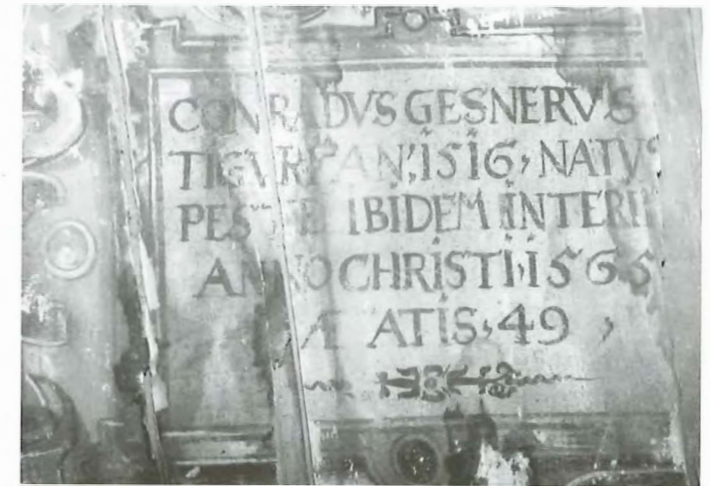 CONRADVS GESNERVS
TIGVRI AN, 1516, NATVS
PESTE IBIDEM INTERII
ANNO CHRISTI, 1565
ÆATIS, 49,